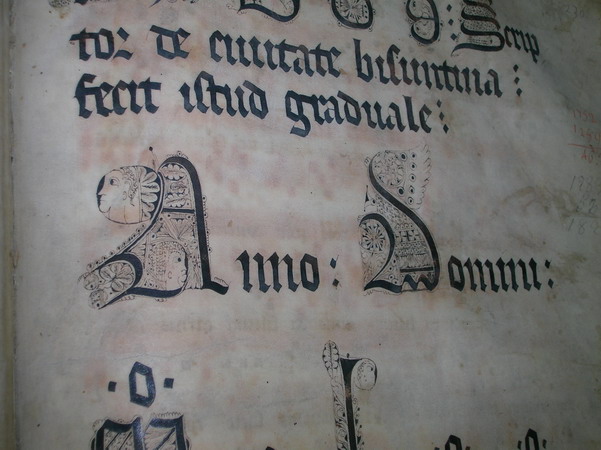 Scrip
tor de ciuitate bisuntina :
fecit istud graduale :
Anno : Domini :
· o ·